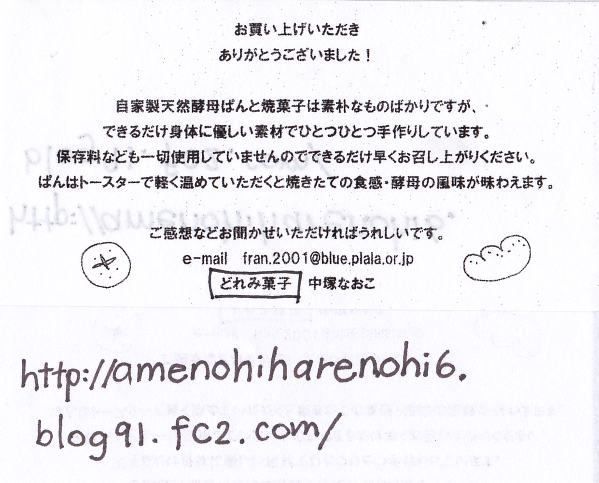 お買い上げいただき
ありがとうございました！
自家製天然酵母ぱんと焼菓子は素朴なものばかりですが、
できるだけ身体に優しい素材でひとつひとつ手作りしています。
保存料なども一切使用していませんのでできるだけ早くお召し上がりください。
ぱんはトースターで軽く温めていただくと焼きたての食感・酵母の風味が味わえます。
ご感想などお聞かせいただければうれしいです。
e-mail fran.2001@blue.plala.or.jp
どれみ菓子 中塚なおこ
http://amenohiharenohi6.
blog91.fc2.com/